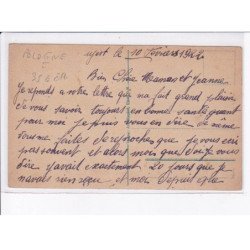 POLOGNE
35 EUR
le 10 Février 1922
Bien Chère Maman et Jeanne
Je réponds a votre lettre que ma fait grand plaisir
de vous savoir toujours en bonne santé quant
pour moi je puis vous en dire de même
vous me faites de reproches que je vous écris
pas souvent et alors moi que je vous
dire j'avait exactement 20 jours que je
navais rien reçu et moi depuis que